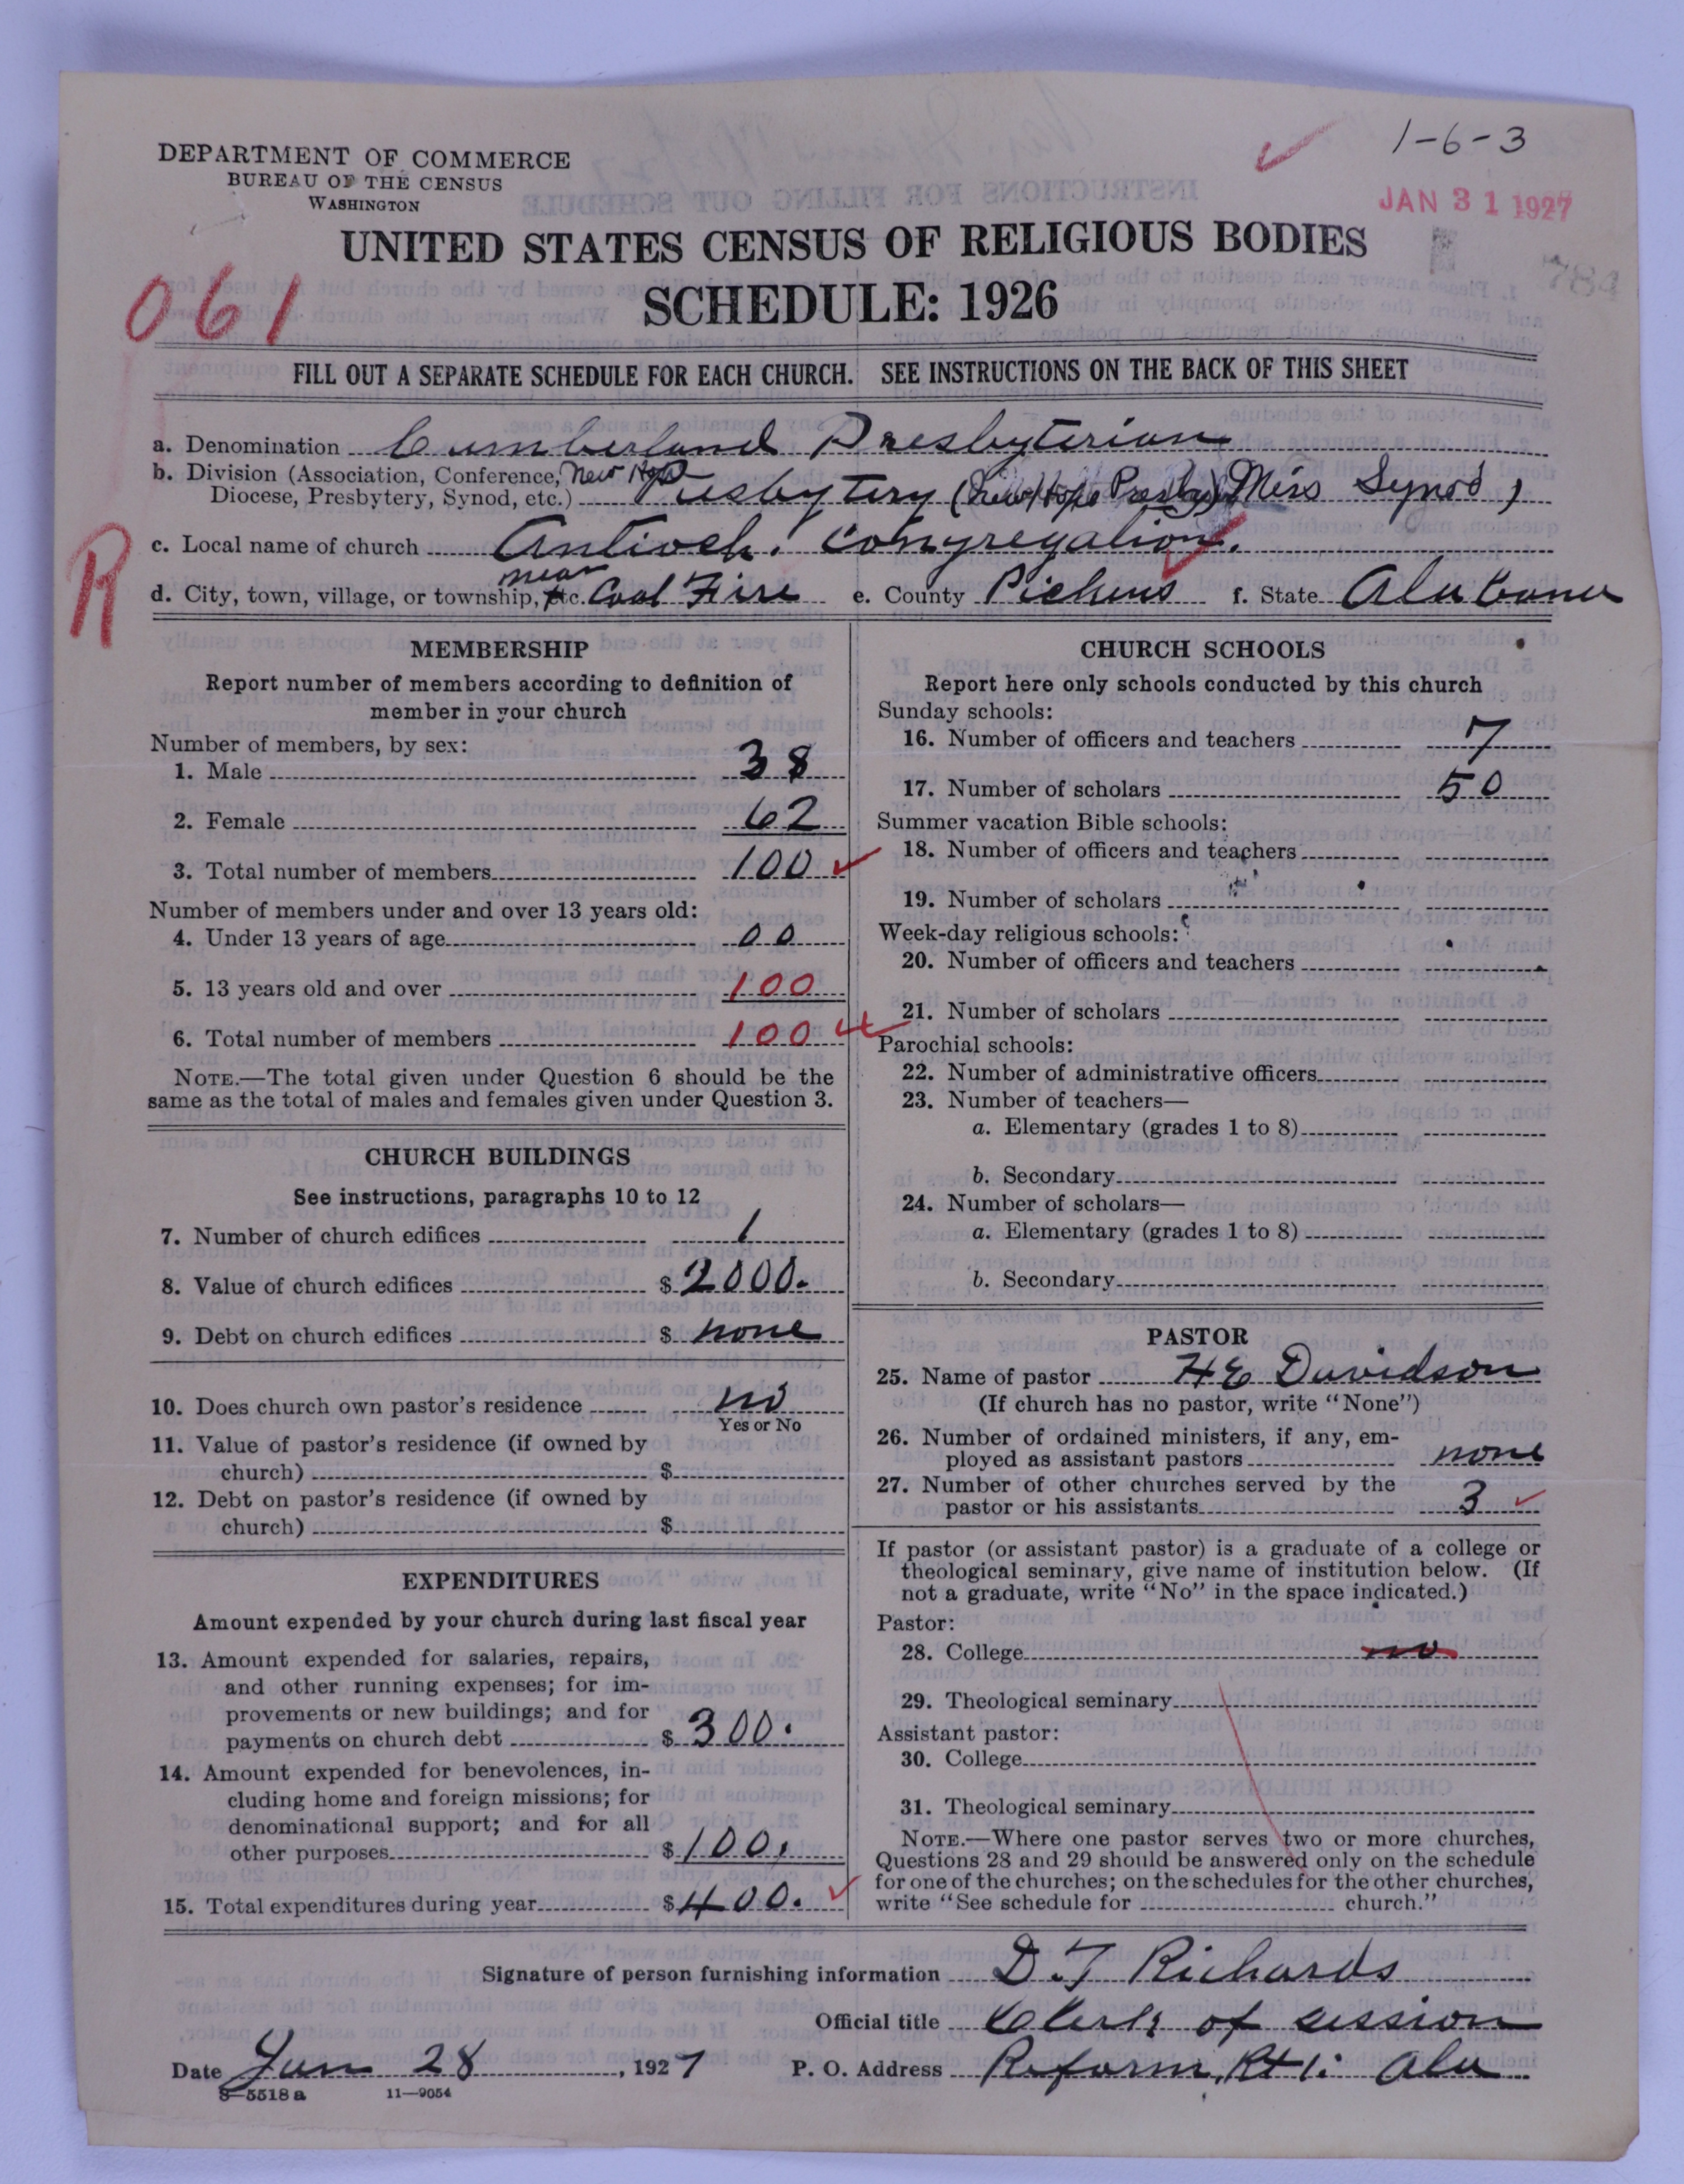 1-6-3
DEPARTMENT OF COMMERCE
BUREAU OF THE CENSUS
WASHINGTON
JAN 31 1927
784
UNITED STATES CENSUS OF RELIGIOUS BODIES
SCHEDULE: 1926
061
FILL OUT A SEPARATE SCHEDULE FOR EACH CHURCH. SEE INSTRUCTIONS ON THE BACK OF THIS SHEET
a. Denomination Cumberland Presbyterian
b. Division (Association, Conference, New Hope
Diocese, Presbytery, Synod, etc.) Presbytery (New Hope Presby) Miss Synod)
R
c. Local name of church Antioch. Congregation.
d. City, town, village, or township, etc. near Coal Fire e. County Pickens f. State Alabama
MEMBERSHIP
Report number of members according to definition of
member in your church
Number of members, by sex:
1. Male 38
2. Female 62
3. Total number of members 100
Number of members under and over 13 years old:
4. Under 13 years of age 00
5. 13 years old and over 100
6. Total number of members 100
NOTE.—The total given under Question 6 should be the
same as the total of males and females given under Question 3.
CHURCH BUILDINGS
See instructions, paragraphs 10 to 12
7. Number of church edifices 1
8. Value of church edifices $ 2000.
9. Debt on church edifices $ none
10. Does church own pastor's residence no
Yes or No
11. Value of pastor's residence (if owned by
church) $
12. Debt on pastor's residence (if owned by
church) $
EXPENDITURES
Amount expended by your church during last fiscal year
13. Amount expended for salaries, repairs,
and other running expenses; for im-
provements or new buildings; and for
payments on church debt $ 300.
14. Amount expended for benevolences, in-
cluding home and foreign missions; for
denominational support; and for all
other purposes $ 100.
15. Total expenditures during year $ 400.
CHURCH SCHOOLS
Report here only schools conducted by this church
Sunday schools:
16. Number of officers and teachers 7
17. Number of scholars 50
Summer vacation Bible schools:
18. Number of officers and teachers
19. Number of scholars
Week-day religious schools:
20. Number of officers and teachers
21. Number of scholars
Parochial schools:
22. Number of administrative officers
23. Number of teachers—
a. Elementary (grades 1 to 8)
b. Secondary
24. Number of scholars—
a. Elementary (grades 1 to 8)
b. Secondary
PASTOR
25. Name of pastor H E Davidson
(If church has no pastor, write "None")
26. Number of ordained ministers, if any, em-
ployed as assistant pastors none
27. Number of other churches served by the
pastor or his assistants 3
If pastor (or assistant pastor) is a graduate of a college or
theological seminary, give name of institution below. (If
not a graduate, write "No" in the space indicated.)
Pastor:
28. College no
29. Theological seminary
Assistant pastor:
30. College
31. Theological seminary
NOTE.—Where one pastor serves two or more churches,
Questions 28 and 29 should be answered only on the schedule
for one of the churches; on the schedules for the other churches,
write "See schedule for church."
Signature of person furnishing information D. T Richards
Official title Clerk of session
Date Jan 28, 1927 P. O. Address Reform, Rt 1. Ala
8—5518 a 11—9054